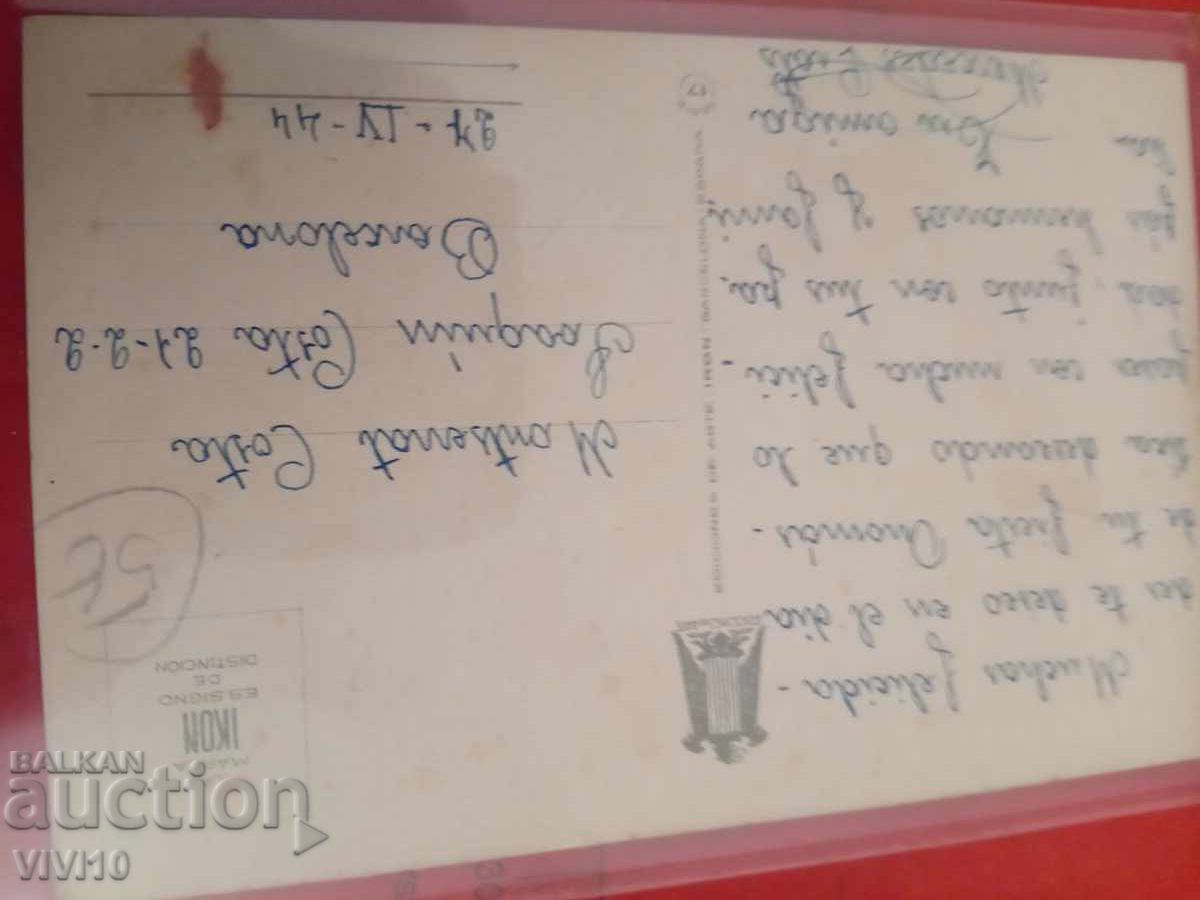 Muchas felicida-
des te deseo en el dia
de tu fiesta Onomás-
tica deseando que lo
pases con mucha felici-
dad junto con tus pa-
dres hermanos y fami-
lia
Tu amiga
EDICIONES DE ARTE
IKON
MARCA
IKON
ES SIGNO
DE
DISTINCION
5€
Montserrat Costa
Joaquin Costa 21-2-2
Barcelona
27-IV-44
BALKAN
auction
VIVI10